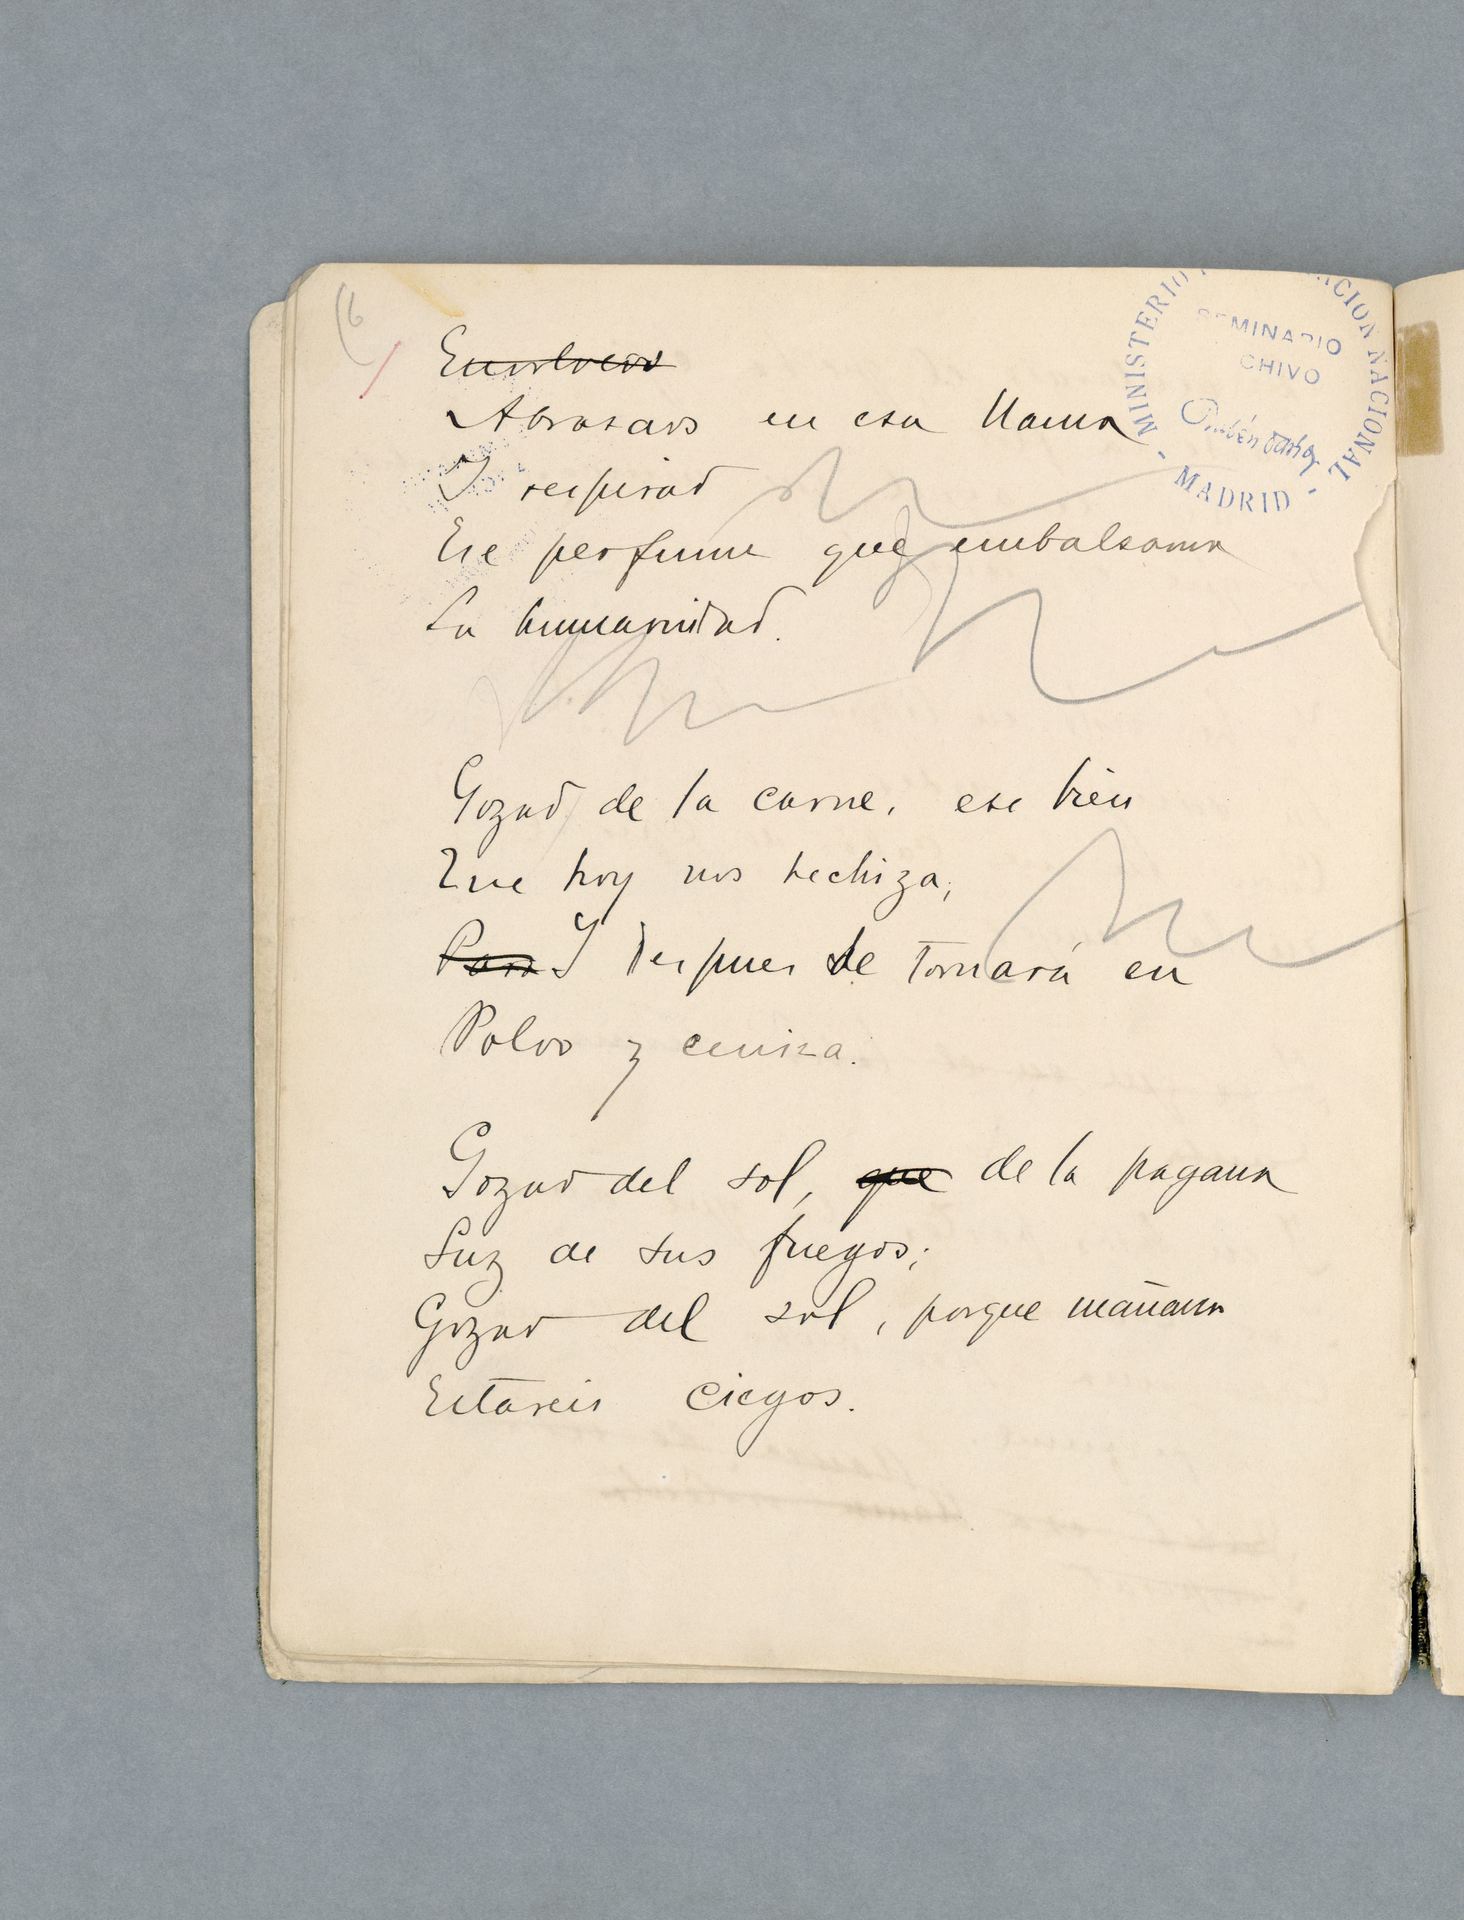 6
Envolveos
Abrasaos en esa llama
Y respirad
Ese perfume que embalsama
La humanidad.
Gozad de la carne, ese bien
Que hoy nos hechiza,
Para Y despues se tornará en
Polvo y ceniza.
Gozad del sol, que de la pagana
Luz de sus fuegos;
Gozad del sol, porque mañana
Estareis ciegos.
MINISTERIO CACION NACIONAL
SEMINARIO
CHIVO
Rubén Darío
- MADRID -